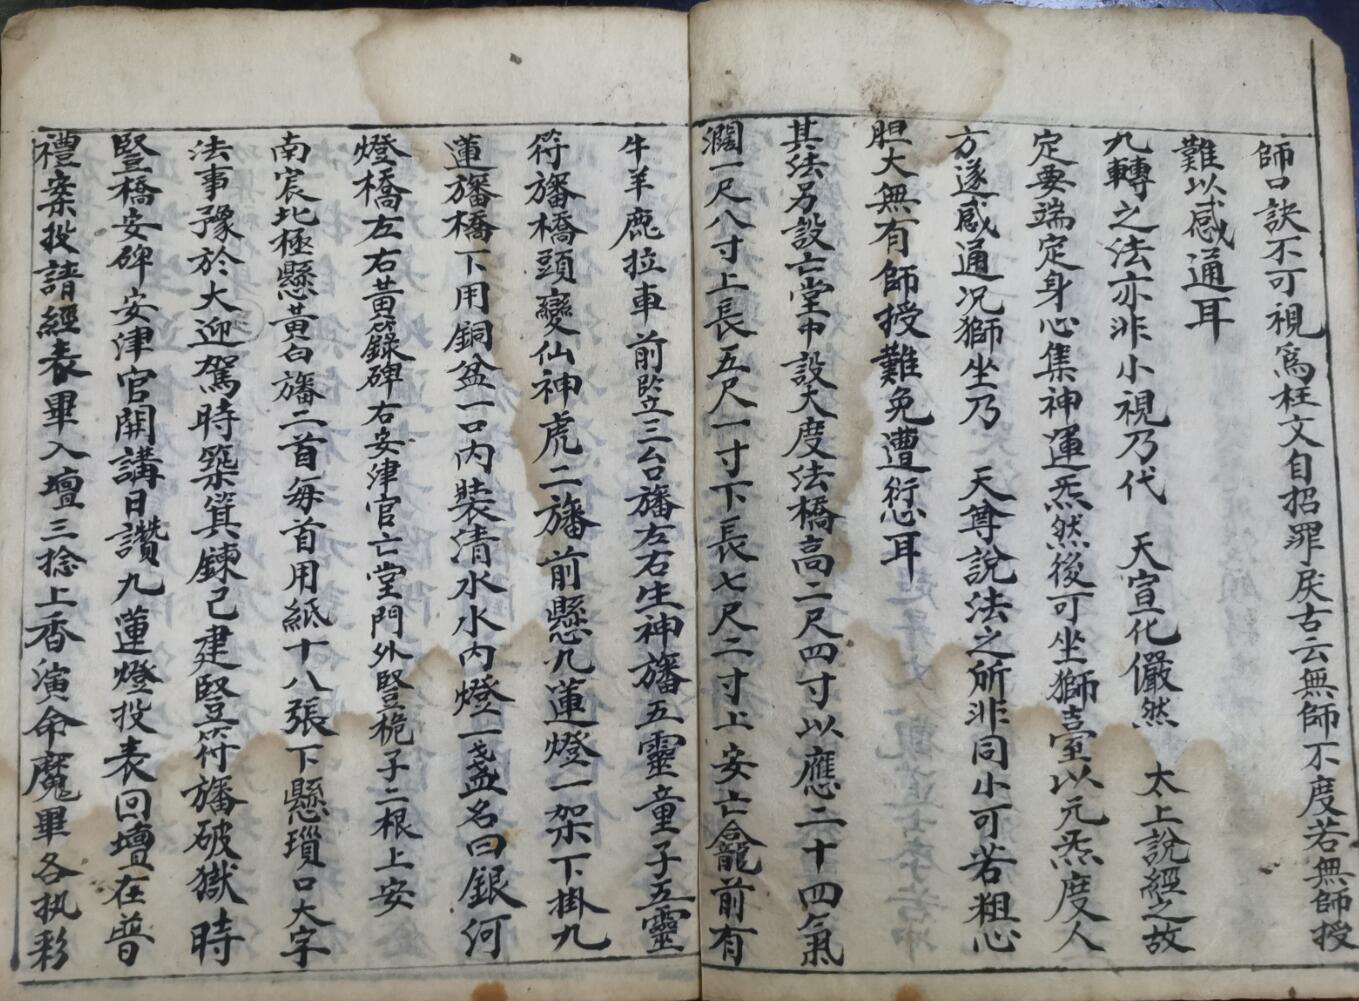 師口訣不可視爲枉文自招罪戾古云無師不度若無師授
難以感通耳
九轉之法亦非小視乃代　天宣化儼然　太上說經之故
定要端定身心集神運炁然後可坐獅臺以元炁度人
方遂感通况獅坐乃　天尊說法之所非同小可若粗心
胆大無有師授難免遭衍愆耳
其法另設亡堂中設大度法橋高二尺四寸以應二十四氣
濶一尺八寸上長五尺一寸下長七尺二寸上安亡龕前有
牛羊鹿拉車前竖三台旛左右生神旛五靈童子五靈
符旛橋頭變仙神虎二旛前懸九蓮燈一架下掛九
蓮旛橋下用銅盆一口內裝清水水內燈一盞名曰銀河
燈橋左右黄籙碑右安津官亡堂門外竪桅子二根上安
南宸北極懸黃白旛二首每首用紙十八張下懸瑣口大字
法事豫於大迎駕時築箕鍊己建竪符旛破獄時
竪橋安碑安津官開講日讚九蓮燈投表回壇在普
禮案投請經表畢入壇三捻上香演命魔畢各执彩